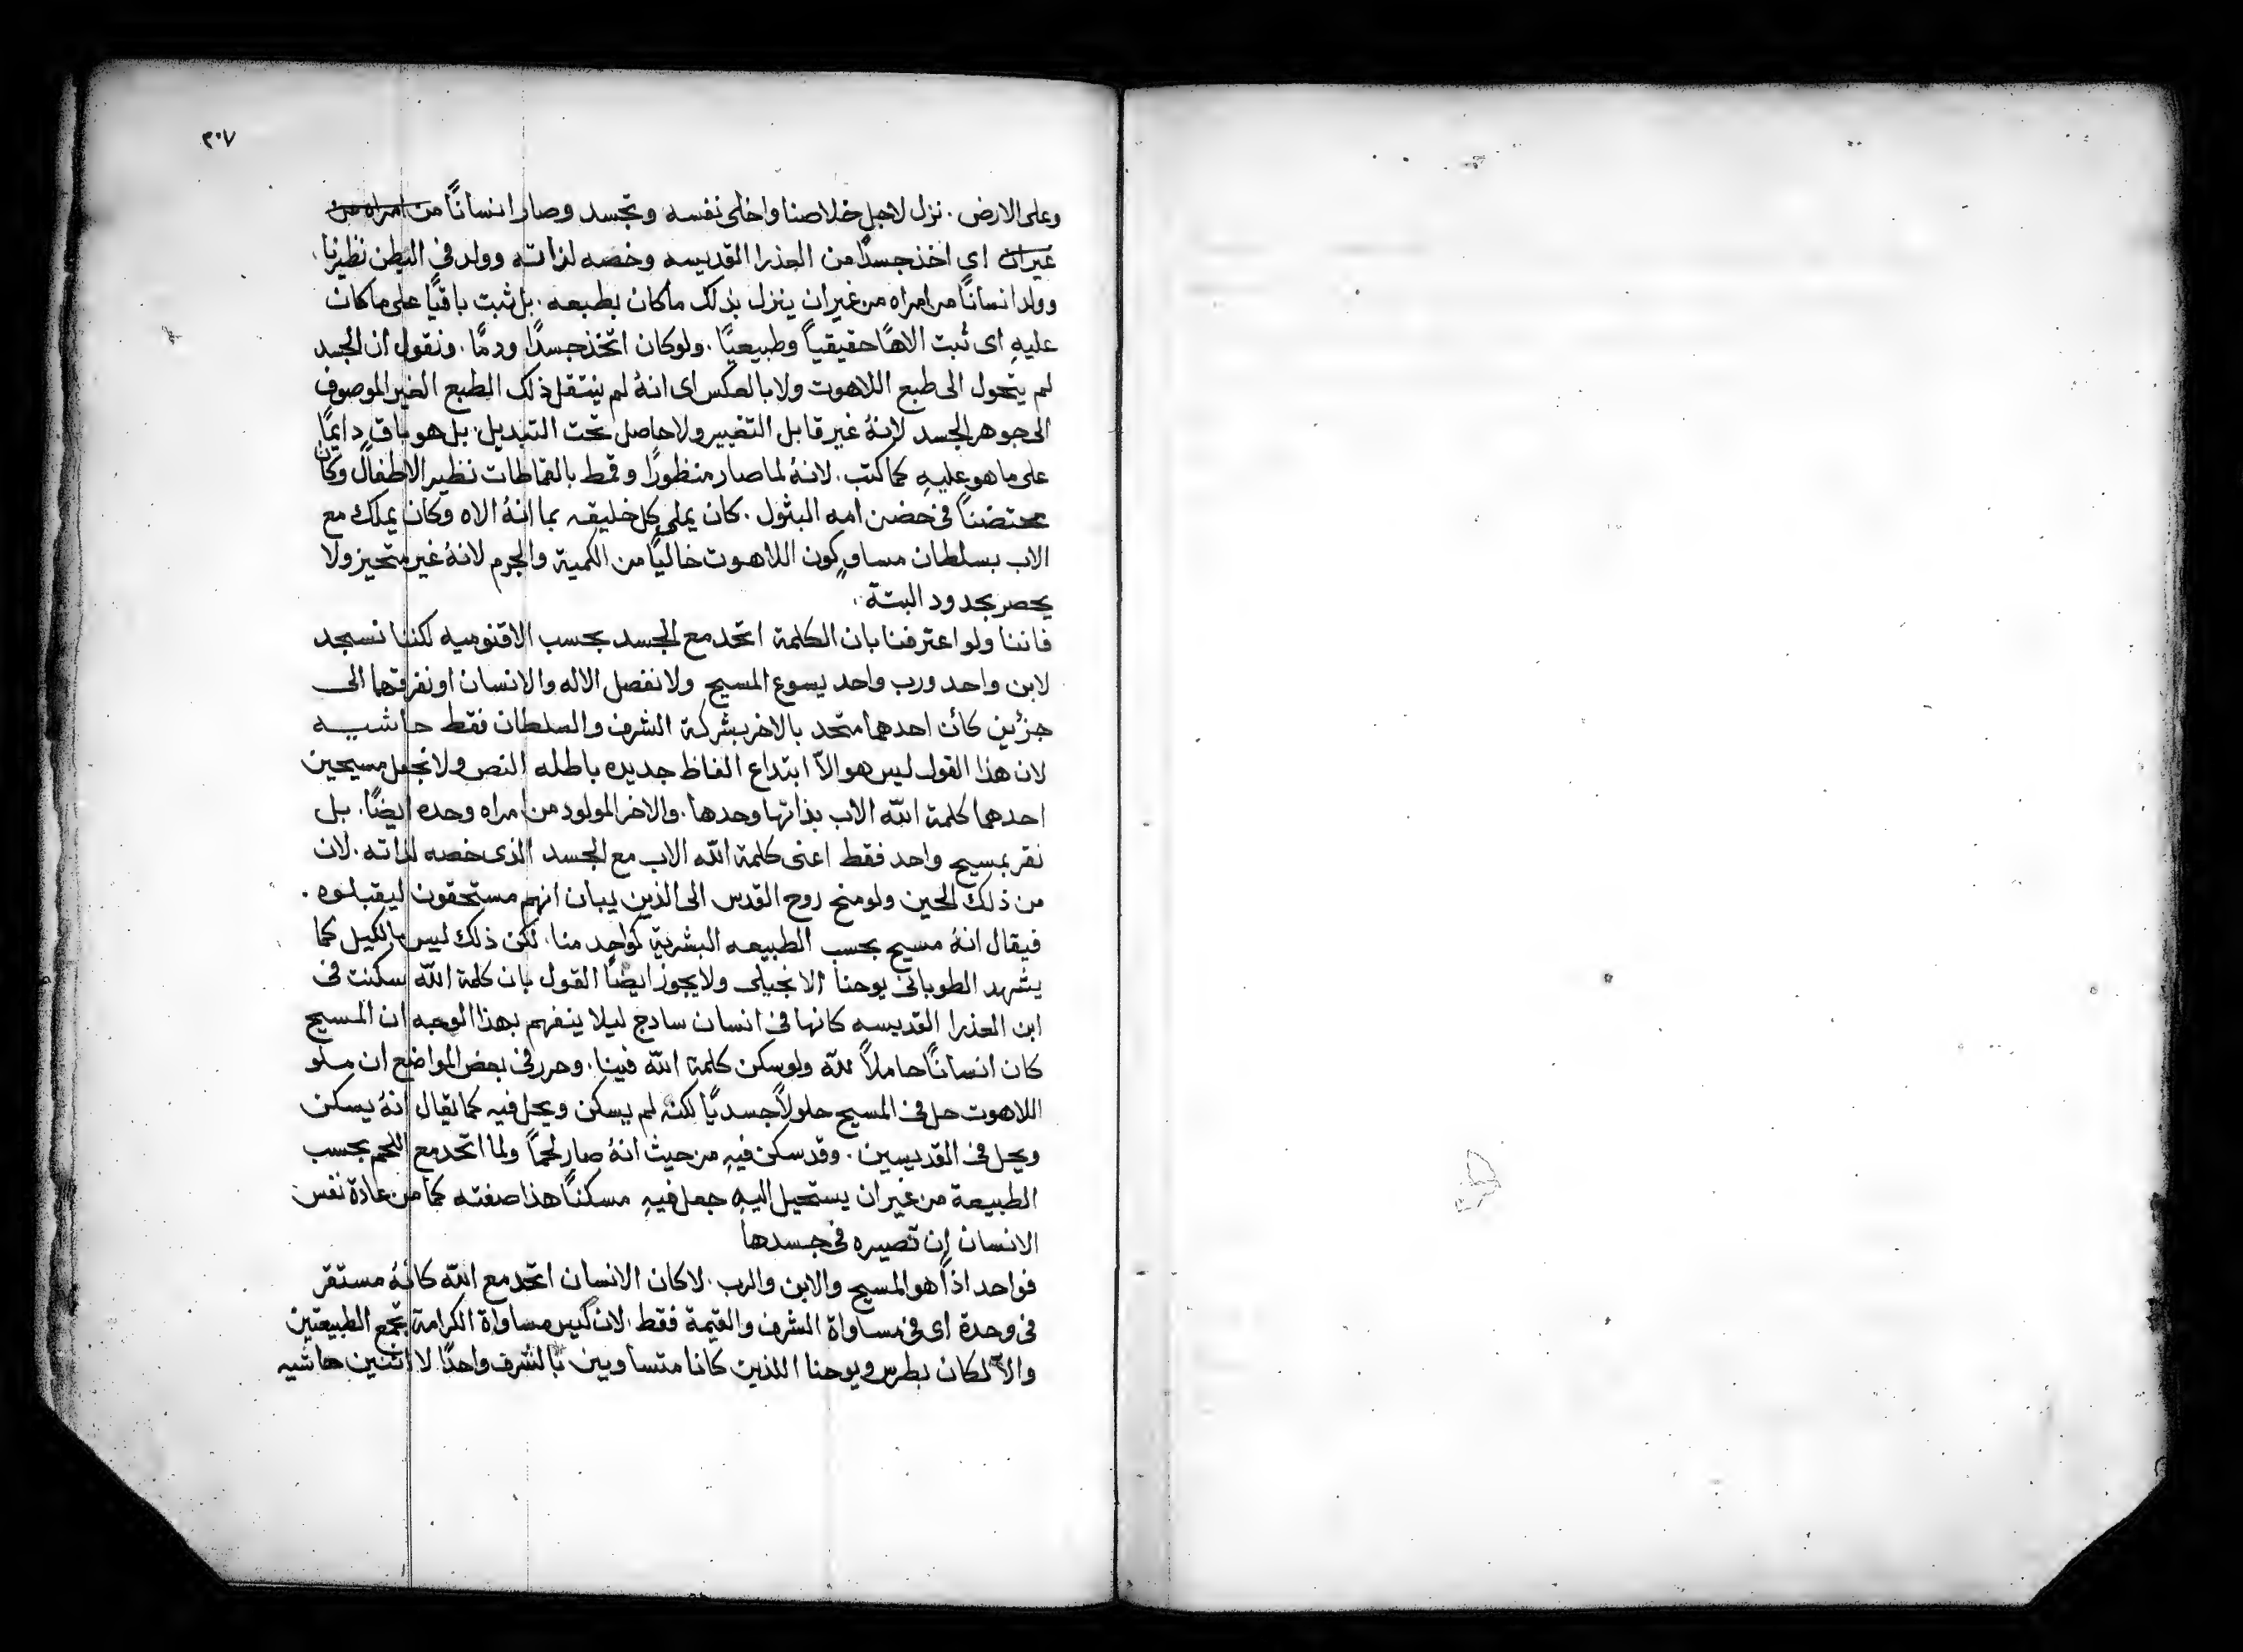 ٣٠٧
وعلى الارض . نزل لاجل خلاصنا واخلى نفسه وتجسد وصار انسانًا من امراه من
غيران اى اخذ جسدًا من العذرا القديسه وخصه لذاته وولد فى البطن نظيرنا .
وولد انسانًا من امراه من غير ان ينزل بذلك ما كان بطبعه . بل ثبت باقيًا على ما كان
عليهِ اى ثبت الاهًا حقيقيًا وطبيعيًا . ولو كان اتخذ جسدًا ودمًا . ونقول ان الجسد
لم يتحول الى طبع اللاهوت ولا بالعكس اى انهُ لم ينتقل ذلك الطبع الغير الموصوف
الى جوهر الجسد لانهُ غير قابل التغيير ولا حاصل تحت التبديل . بل هو باقٍ دايمًا
على ما هو عليهِ كما كتب . لانهُ لما صار منظورًا وقمط بالقماطات نظير الاطفال وكان
محتضنًا فى حضن امه البثول . كان يملى كل خليقه بما انهُ الاه وكان يملك مع
الاب بسلطان مساوٍ كون اللاهوت خاليًا من الكمية والجرم لانهُ غير متحيز ولا
يحصر بحدود البتة .
فاننا ولو اعترفنا بان الكلمة اتحد مع الجسد بحسب الاقنوميه لكننا نسجد
لابن واحد ورب واحد يسوع المسيح ولا نفصل الاله والانسان او نفرقهما الى
جزئين كأن احدهما متحد بالاخر بشركة الشرف والسلطان فقط حاشيه
لان هذا القول ليس هو الاّ ابتداع الفاظ جديده باطله النص ولا نجعل مسيحين
احدهما كلمة الله الاب بذاتها وحدها . والاخر المولود من امراه وحده ايضًا . بل
نقر بمسيح واحد فقط اعنى كلمة الله الاب مع الجسد الذى خصه لذاته . لان
من ذلك الحين ولو منح روح القدس الى الذين يبان انهم مستحقون ليقبلوه .
فيقال انهُ مسيح بحسب الطبيعه البشرية كواحد منا . لكن ذلك ليس بالكيل كما
يشهد الطوبانى يوحنا الانجيلى ولا يجوز ايضًا القول بان كلمة الله سكنت فى
ابن العذرا القديسه كانها فى انسان سادج ليلا ينفهم بهذا الوجه ان المسيح
كان انسانًا حاملاً لله ولو سكن كلمة الله فينا . وحرر فى بعض المواضع ان ملو
اللاهوت حل فى المسيح حلولاً جسديًا لكنه لم يسكن ويحل فيه كما يقال انهُ يسكن
ويحل فى القديسين . وقد سكن فيهِ من حيث انهُ صار لحمًا ولما اتحد مع اللحم بحسب
الطبيعة من غير ان يستحيل اليهِ جعل فيهِ مسكنًا هذا صفته كما من عادة نفس
الانسان ان تصيره فى جسدها
فواحد اذًا هو المسيح والابن والرب . لا كان الانسان اتحد مع الله كانهُ مستقر
فى وحدة اى فى مساواة الشرف والقيمة فقط . لان ليس مساواة الكرامة تجمع الطبيعتين
والاّ لكان بطرس ويوحنا اللذين كانا متساويين بالشرف واحدًا لا اثنين حاشيه